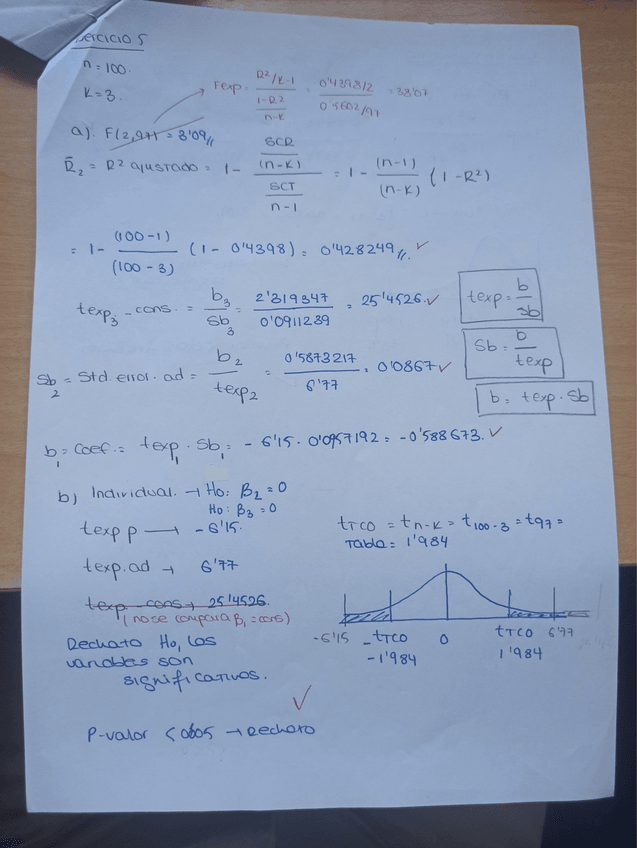 ercicio 5
n = 100.
K = 3.
Fexp = (R2/K-1) / ((1-R2)/(n-K)) = (0'4398/2) / (0'5602/97) = 38'07
a). F(2,97) = 3'09 //
R̄2 = R2 ajustado = 1 - (SCR/(n-K)) / (SCT/n-1) = 1 - (n-1)/(n-K) (1-R2)
= 1 - (100-1)/(100-3) (1 - 0'4398) = 0'428249 //. ✓
texp3 - cons. = b3/Sb3 = 2'319347/0'0911239 = 25'4526. ✓
texp = b/Sb
Sb2 = Std. error. ad = b2/texp2 = 0'5873217/6'77 = 0'0867 ✓
Sb = b/texp
b = texp · Sb
b1 = Coef. = texp1 · Sb1 = -6'15 · 0'0957192 = -0'588673. ✓
b) Individual. → Ho: β2 = 0
Ho: β3 = 0
texp p → -6'15.
tTCO = tn-K = t100-3 = t97 =
Tabla = 1'984
texp. ad → 6'77
texp - cons → 25'4526.
(no se compara β1 = cons)
-6'15 -tTCO 0 tTCO 6'77
-1'984 1'984
Rechazo Ho, las
variables son
significativas.
✓
P-valor < 0'05 → Rechazo